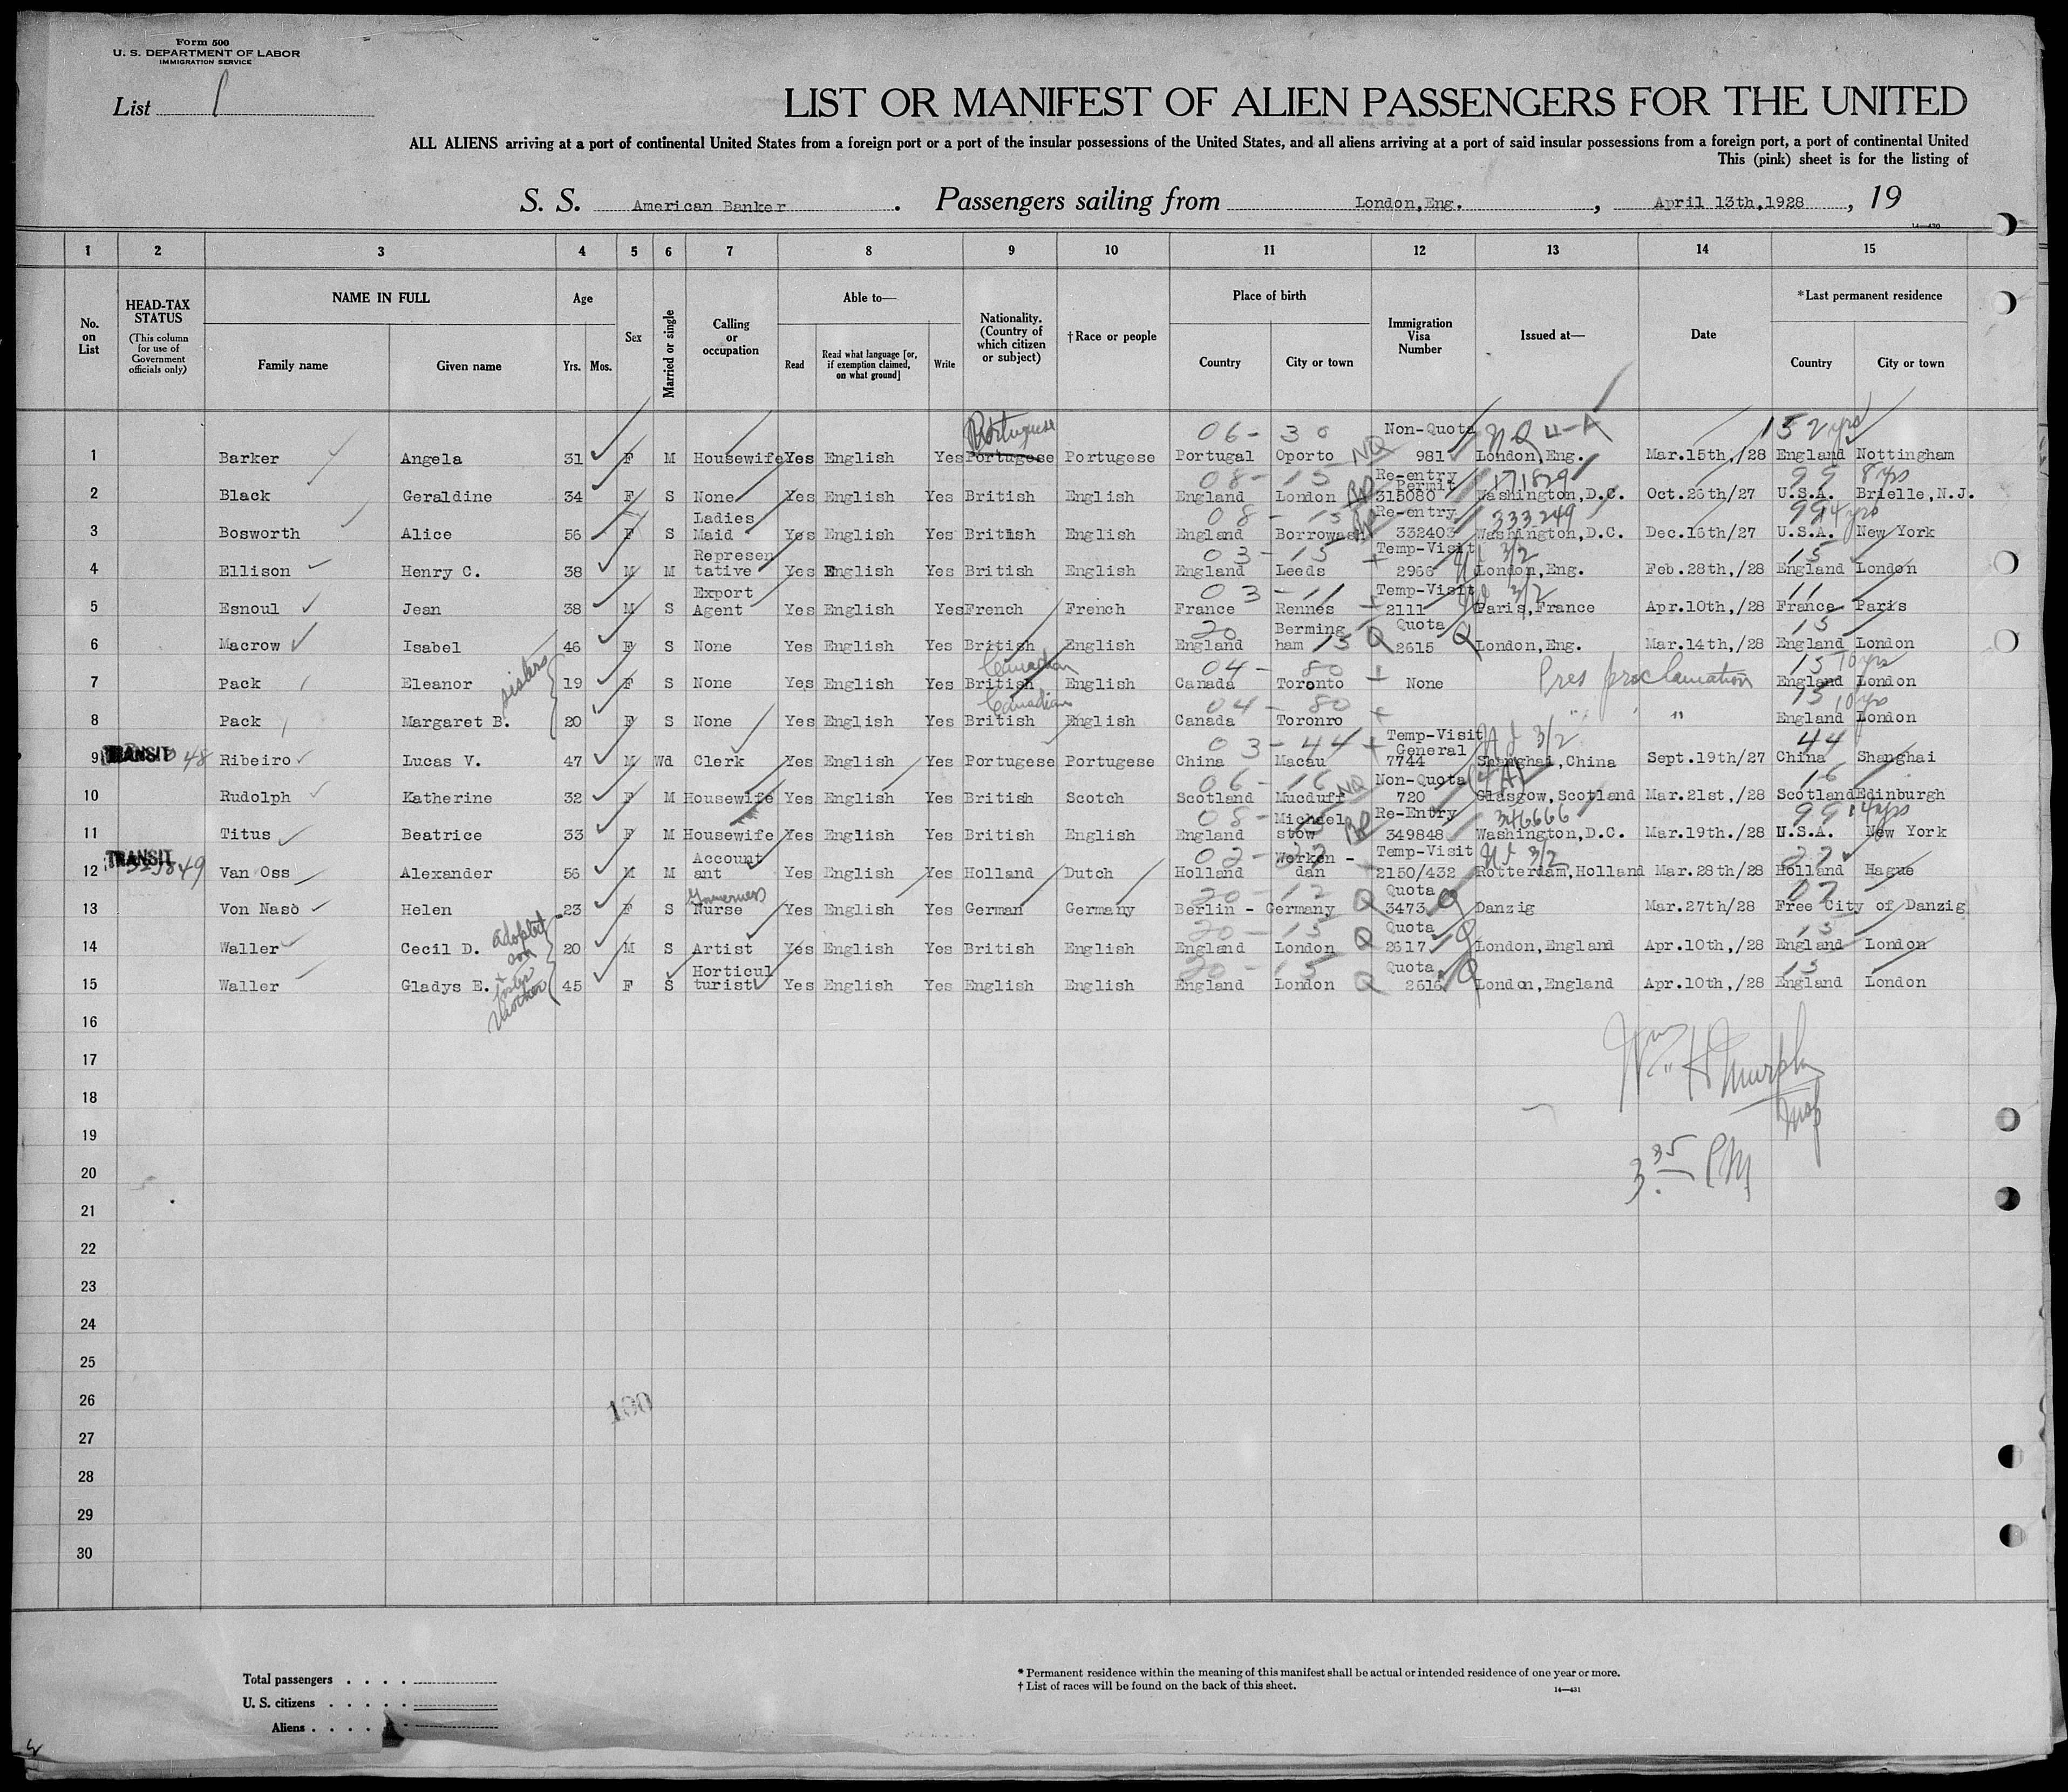 Form 500
U. S. DEPARTMENT OF LABOR
IMMIGRATION SERVICE
List 1
LIST OR MANIFEST OF ALIEN PASSENGERS FOR THE UNITED
ALL ALIENS arriving at a port of continental United States from a foreign port or a port of the insular possessions of the United States, and all aliens arriving at a port of said insular possessions from a foreign port, a port of continental United
This (pink) sheet is for the listing of
S. S. American Banker . Passengers sailing from London,Eng. , April 13th,1928 , 19
14—430
1 2 3 4 5 6 7 8 9 10 11 12 13 14 15
No. on List
HEAD-TAX STATUS
(This column for use of Government officials only)
NAME IN FULL
Family name Given name
Age
Yrs. Mos.
Sex
Married or single
Calling or occupation
Able to—
Read Read what language [or, if exemption claimed, on what ground] Write
Nationality. (Country of which citizen or subject)
†Race or people
Place of birth
Country City or town
Immigration Visa Number
Issued at—
Date
*Last permanent residence
Country City or town
Portuguese 06- 30 Non-Quota NQ 4-A 15 2 yrs
1 Barker Angela 31 F M Housewife Yes English Yes Portugese Portugese Portugal Oporto NQ 981 London,Eng. Mar.15th,/28 England Nottingham
08- 15 Re-entry Permit 171829 99 8 yrs
2 Black Geraldine 34 F S None Yes English Yes British English England London RP 315080 Washington,D.C. Oct.26th/27 U.S.A. Brielle,N.J.
Ladies 08 - 15 Re-entry 333249 99 4 yrs
3 Bosworth Alice 56 F S Maid Yes English Yes British English England Borrowash RP 332403 Washington,D.C. Dec.16th/27 U.S.A. New York
Represen 03- 15 Temp-Visit 3/2 15
4 Ellison Henry C. 38 M M tative Yes English Yes British English England Leeds 2966 London,Eng. Feb.28th,/28 England London
Export 03-11 Temp-Visit 3/2 11
5 Esnoul Jean 38 M S Agent Yes English Yes French French France Rennes 2111 Paris,France Apr.10th,/28 France Paris
20 Berming Quota 15
6 Macrow Isabel 46 F S None Yes English Yes British English England ham 15 Q 2615 Q London,Eng. Mar.14th,/28 England London
sisters Canadian 04- 80 15 10 yrs
7 Pack Eleanor 19 F S None Yes English Yes British English Canada Toronto None Pres proclamation England London
Canadian 04 - 80 15 10 yrs
8 Pack Margaret B. 20 F S None Yes English Yes British English Canada Toronro " " England London
Temp-Visit
TRANSIT 03-44 General 3/2 44
9 48 Ribeiro Lucas V. 47 M Wd Clerk Yes English Yes Portugese Portugese China Macau 7744 Shanghai,China Sept.19th/27 China Shanghai
06- 16 Non-Quota (4A) 16
10 Rudolph Katherine 32 F M Housewife Yes English Yes British Scotch Scotland Macduff NQ 720 Glasgow,Scotland Mar.21st,/28 Scotland Edinburgh
08- Michael Re-Entry 346666 99 14 yrs
11 Titus Beatrice 33 F M Housewife Yes English Yes British English England stow RP 349848 Washington,D.C. Mar.19th./28 U.S.A. New York
TRANSIT Account 02-22 Worken - Temp-Visit 3/2 22
12 Van Oss Alexander 56 M M ant Yes English Yes Holland Dutch Holland dan 2150/432 Rotterdam,Holland Mar.28th/28 Holland Hague
Governess 20-12 Quota 07
13 Von Naso Helen 23 F S Nurse Yes English Yes German Germany Berlin - Germany Q 3473 Q Danzig Mar.27th/28 Free City of Danzig
adopted son 20-15 Quota 15
14 Waller Cecil D. 20 M S Artist Yes English Yes British English England London Q 2617 Q London,England Apr.10th,/28 England London
+ foster mother Horticul 20-15 Quota 15
15 Waller Gladys E. 45 F S turist Yes English Yes English English England London Q 2616 Q London,England Apr.10th,/28 England London
16
Wm H Murphy
17
18
Insp
19
3.35 PM
20
21
22
23
24
25
26
190
27
28
29
30
Total passengers . . . .
U. S. citizens . . . . .
Aliens . . . .
* Permanent residence within the meaning of this manifest shall be actual or intended residence of one year or more.
† List of races will be found on the back of this sheet.
14—431